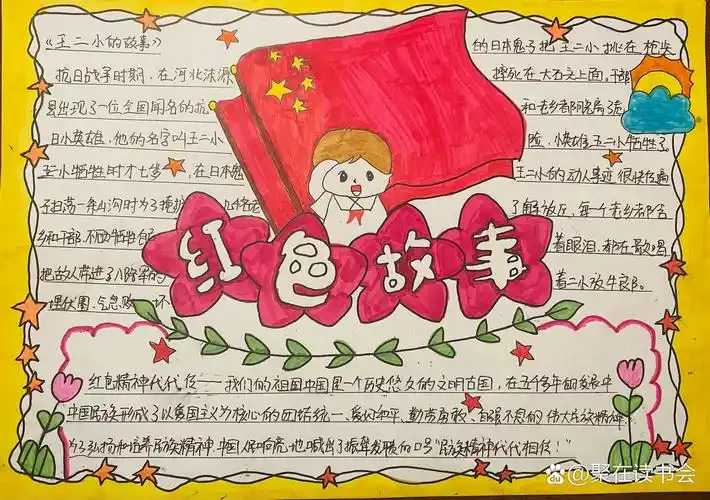 《王二小的故事》
抗日战争时期,在河北涞源
县出现了一位全国闻名的抗
日小英雄,他的名字叫王二小
王二小牺牲时才七多 在日本鬼
子扫荡一条山沟时为了掩护
乡和干部,不功牺牲自
把敌人带进了八路军的
埋伏圈,气急败 坏
的日本鬼子把王二小挑在枪尖
摔死在大石头上面,干部
和老乡都脱离了危
险,小英雄王二小牺牲了
王二小的动人事迹很快传遍
了解放区,每个老乡都含
着眼泪,都在歌唱
着二小放牛良郎。
红色故事
红色精神代代传——我们的祖国中国是一个历史悠久的文明古国,在五千多年的发展中
中国民族形成了以爱国主义为核心的团结统一、爱好和平、勤劳勇敢、自强不息的伟大民族精神
为了弘扬和培养民族精神,中国人民响亮地喊出了振聋发聩的口号"民族精神代代相传!"
@聚在读书会